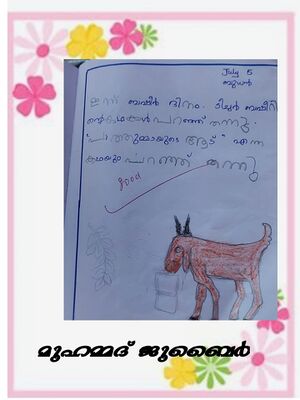 July 5
ബുധൻ
ഇന്ന് ബഷീർ ദിനം. ടീച്ചർ ബഷീറി
ന്റെ കഥകൾ പറഞ്ഞ് തന്നു.
"പാത്തുമ്മായുടെ ആട്" എന്ന
കഥയും പറഞ്ഞ് തന്നു
good
മുഹമ്മദ് ജുബൈർ